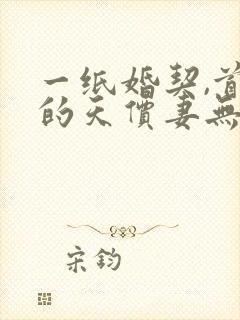 一纸婚契,首
的天價妻無
宋鈞